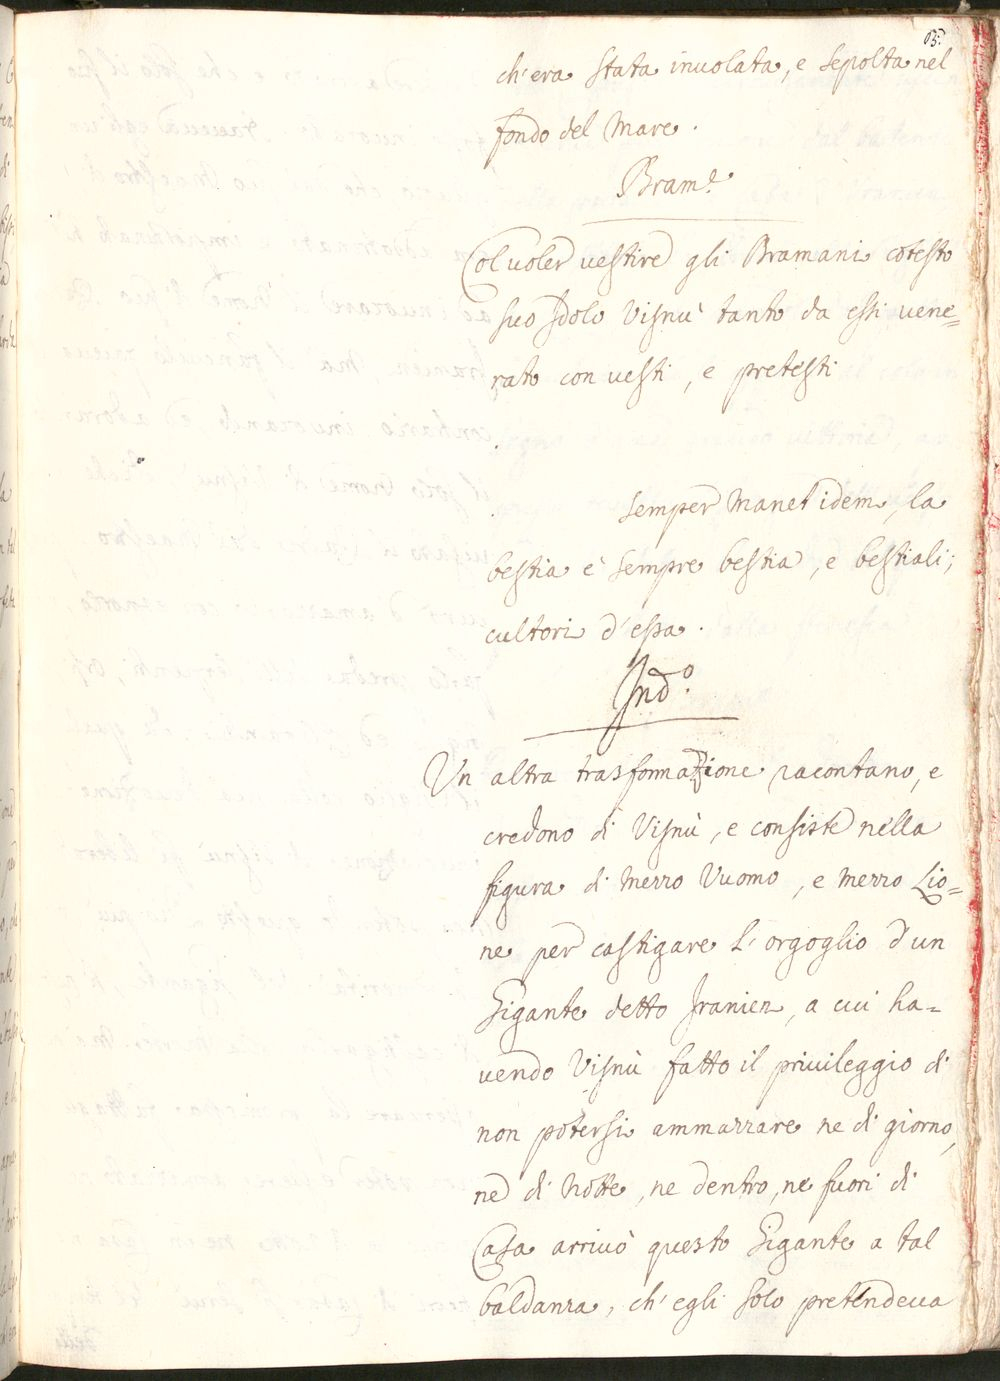 65.
ch'era stata inuolata, e sepolta nel
fondo del Mare.
Bram.e
Col uoler uestire gli Bramani cotesto
suo Idolo Visnù tanto da essi uene=
rato con uesti, e pretesti
semper manet idem, la
bestia è sempre bestia, e bestiali;
cultori d'essa.
Ind.o
Un altra trasformazione racontano, e
credono di Visnù, e consiste nella
figura di mezzo Vuomo, e mezzo Lio=
ne per castigare l'orgoglio d'un
Gigante detto Iranien, a cui ha=
uendo Visnù fatto il priuileggio di
non potersi ammazzare ne di giorno,
ne di notte, ne dentro, ne fuori di
Casa arriuò questo Gigante a tal
baldanza, ch'egli solo pretendeua